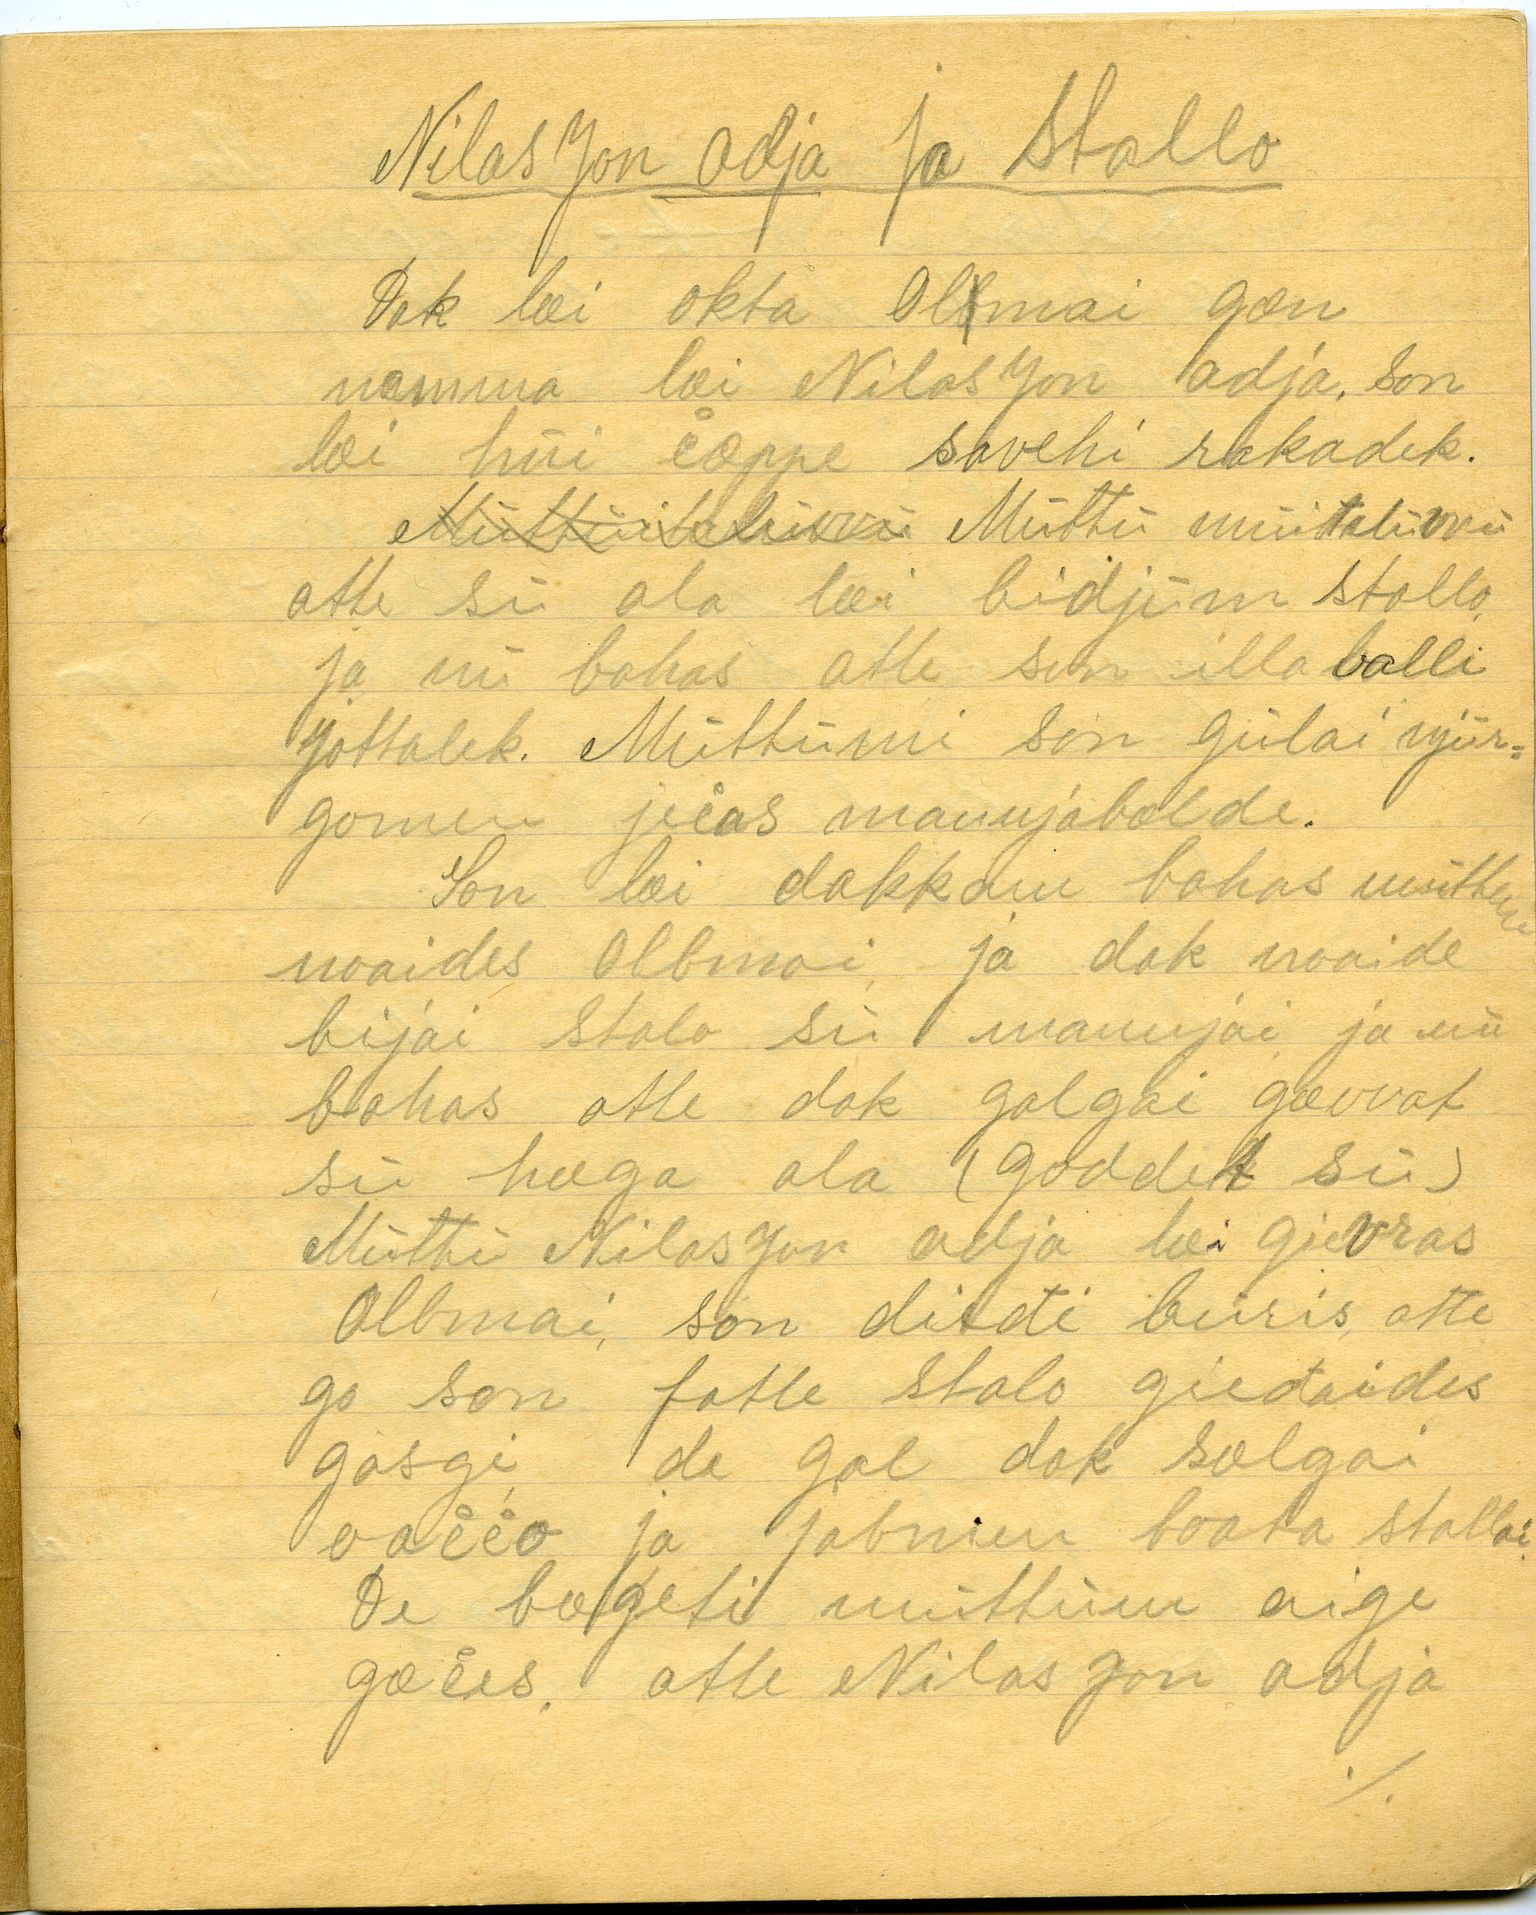 Nilas Jon adja ja Stallo
Dak læi okta Olbmai gæn
namma læi Nilas Jon adja, son
læi hüi čæppe savehi rakadek.
Müttüitalüvvü Müttü müitalüvvü
atte sü ala læi bidjüm stallo,
ja nü bahas atte son illa balli
jottalek. Müttümi son gülai njür-
gomen ječas mannjabælde.
Son læi dakkam bahas müttem
noaides Olbmai, ja dak noaide
bijai stalo sü mannjai, ja nü
bahas atte dak galgai gævvat
sü hægga ala (goddet sü)
Müttü Nilas Jon adja læi gievras
Olbmai, son ditdi büris, atte
go son fatte stalo giedaides
gasgi, de gal dak sælgai
oaččo ja jabmen boata stallai.
De bægeti müttüm aige
gæčes, atte Nilas Jon adja
./.